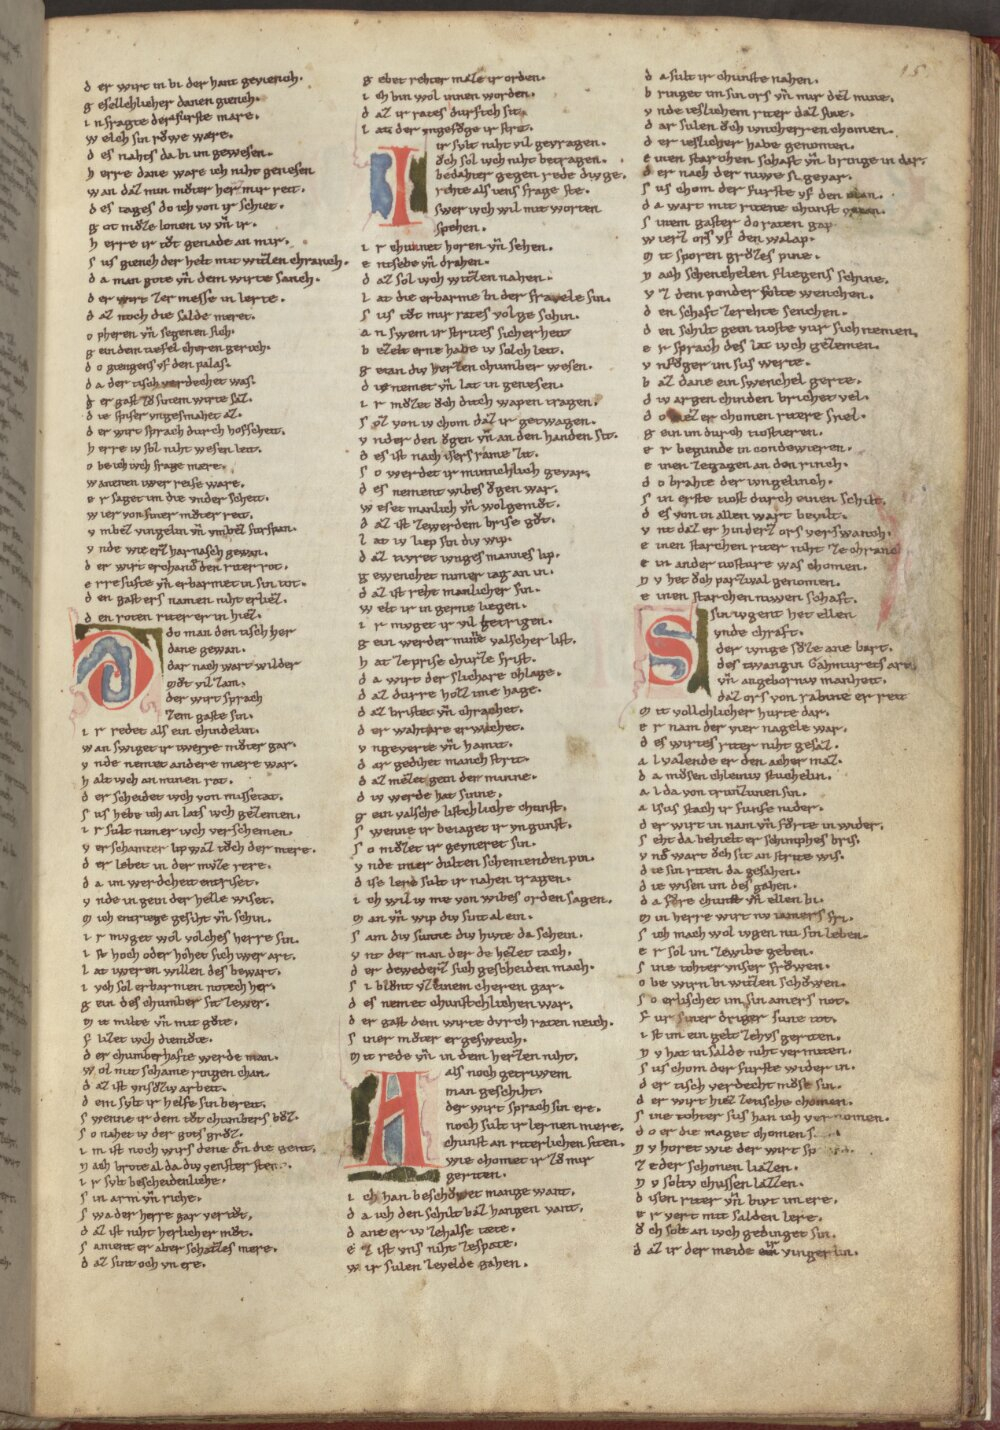 15
der wirt in bi der hant geviench.
gesellechlicher danen giench.
in fragte der furste mare.
welch sin rŏwe ware.
des nahts da bi im gewesen.
herre dane ware ich niht genesen
wan daz min mŏter her mir reit.
des tages do ich von ir schiet.
got mŏze lonen iv vn̄ ir.
herre ir tŏt genade an mir.
sus giench der helt mit witzen chranch.
da man gote vn̄ dem wirte sanch.
der wirt zer messe in lerte.
daz noch die salde meret.
opheren vn̄ segenen sich.
gein dem tiefel cheren gerich.
do giengens vf den palas.
da der tisch verdechet was.
der gast zŏ sinem wirte saz.
die spise vngesmahet az.
der wirt sprach durch hofscheit.
herre iv sol niht wesen leit.
obe ich ivch frage mere.
wannen iwer reise ware.
er saget im die vnder scheit.
wier von siner mŏter reit.
vmbez vingelin vn̄ vmbez furspan.
vnde wie erz harnasch gewan.
der wirt erchande den riter rot.
er resufte vn̄ erbarmet in sin not.
den gast ers namen niht erliez.
den roten riter er in hiez.
do man den tisch her
dane gewan.
dar nach wart wilder
mŏt vil zam.
der wirt sprach
zem gaste sin.
ir redet als ein chindelin.
wan swiget ir iwerre mŏter gar.
vnde nemet anderre mære war.
halt ivch an minen rat.
der scheidet ivch von missetat.
sus hebe ich an lats ivch gezemen.
ir sult nimer ivch verschemen.
verschamter lip waz tŏch der mere.
der lebet in der mvze rere.
da im werdcheit entriset.
vnde in gein der helle wiset.
mich entriege gesiht vn̄ schin.
ir mvget wol volches herre sin.
ist hoch oder hohet sich iwer art.
lat iweren willen des bewart.
ivch sol erbarmen notech her.
gein des chumber sit zewer.
mit milte vn̄ mit gŏte.
flizet ivch diemŏte.
der chumberhafte werde man.
wol mit schame ringen chan.
daz ist vnsŏziv arbeit.
dem svlt ir helfe sin bereit.
swenne ir dem tŏt chumbers bŏz.
so nahet iv der gots grŏz.
im ist noch wirs dene dē die gent.
nach brote al da div venster stent.
ir svlt bescheidenliche.
sin arm vn̄ riche.
swa der herre gar vertŏt.
daz ist niht herlicher mŏt.
sament er aber schatzes mere.
daz sint och vn ere.
gebet rehter maze ir orden.
ich bin wol innen worden.
daz ir rates durftch sit.
lat der vngefŏge ir strit.
ir svlt niht vil gevragen.
ŏch sol ivch niht betragen.
bedahter gegen rede div ge.
rehte als iens frage ste.
swer ivch wil mit worten
spehen.
ir chunnet horen vn̄ sehen.
entsebe vn̄ drahen.
daz sol ivch witzen nahen.
lat die erbarme bi der fravele sin.
sus tŏt mir rates volge schin.
an swem ir strites sicherheit
bezelt erne habe iv solch leit.
getan div herzen chumber wesen.
die nemet vn̄ lat in genesen.
ir mŏzet ŏch dich wapen tragen.
sŏz von iv chom daz ir getwagen.
vnder den ŏgen vn̄ an den handen sit.
des ist nach isers rame zit.
so werdet ir minnechlich gevar.
des nement wibes ŏgen war.
weset manlich vn̄ wolgemŏt.
daz ist zewerdem brise gŏt.
lat iv liep sin div wip.
daz tvret ivnges mannes lip.
gewenchet nimer tag an in.
daz ist rehte manlicher sin.
welt ir in gerne liegen.
ir mvget ir vil getriegen.
gein werder minne valscher list.
hat zeprise churze frist.
da wirt der slichare chlage.
daz durre holz ime hage.
daz bristet vn̄ chrachet.
der wahtare erwachet.
vngeverte vn̄ hamit.
dar gedihet manch strit.
daz mezet gein der minne.
div werde hat sinne.
gein valsche listchliche chunst.
swenne ir beiaget ir vngunst.
so mŏzet ir geuneret sin.
vnde imer dulten schemenden pin.
dise lere sult ir nahen tragen.
ich wil iv me von wibes orden sagen.
man vn̄ wip div sint al ein.
sam div sunne div hiute da schein.
vnt der man der da heizet tach.
der dewederz sich gescheiden mach.
si blŏnt vz einem cheren gar.
des nemet chunstchlichen war.
der gast dem wirte dvrch raten neich.
siner mŏter er gesweich.
mit rede vn̄ in dem herzen niht.
als noch getriwem
man geschiht.
der wirt sprach sin ere.
noch sult ir lernen mere.
chunst an riterlichen siten.
wie chomet ir zŏ mir
geriten.
ich han beschŏwet mange want.
da ich den schilt baz hangen vant.
dane er iv zehalse tæte.
ez ist vns niht zespate.
wir sulen zevelde gahen.
da sult ir chunste nahen.
bringet im sin ors vn̄ mir dez mine.
vnde ieslichem riter daz sine.
dar sulen ŏch ivncherren chomen.
der ieslicher habe genomen.
einen starchen schaft vn̄ bringe in dar.
der nach der niwe si gevar.
sus chom der furste vf den plan.
da wart mit ritene chunst getan.
sinem gaster do raten gap
wierz ors vf den walap.
mit sporen grŏzes pine.
nach schenehelen fliegens schine.
vz dem ponder solte wenchen.
den schaft zerehte senchen.
den schilt gein tioste vur sich nemen.
er sprach des lat ivch gezemen.
vnfŏger im sus werte.
baz dane ein swenchel gerte.
div argen chinden brichet vel.
do hiez er chomen ritere snel.
gein im durch tiostieren.
er begunde in condewieren.
einen zegagen an den rinch.
do brahte der ivngelinch.
sin erste tiost durch einen schilt.
des von in allen wart bevilt.
vnt daz er hinderz ors verswanch.
einen starchen riter niht ze chranch
ein ander tiosture was chomen.
nv het ŏch parzival genomen.
einen starchen niwen schaft.
sin ivgent het ellen
vnde chraft.
der ivnge sŏze ane bart.
des twangin Gahmurets art.
vn̄ angeborniv manheit.
daz ors von rabine er reit
mit vollchlicher hurte dar.
er nam der vier nagele war.
des wirtes riter niht gesaz.
al valende er den acher maz.
da mŏsen chleiniv stuchelin.
alda von trunzunen sin.
alsus stach ir funfe nider.
der wirt in nam vn̄ fŏrte in wider.
seht da behielt er schimphes bris.
vnŏ wart ŏch sit an strite wis.
die sin riten da gesahen.
die wisen im des gahen.
da fŏre chunst vn̄ ellen bi.
min herre wirt nv iamers fri.
sich mach wol ivgen nu sin leben.
er sol im zewibe geben.
sine tohter vnser frŏwen.
obe wirn bi witzen schŏwen.
so erlischet im sin iamers not.
fur siner driger sune tot.
ist im ein gelt zehvs geriten.
nv hat in salde niht vermiten.
sus chom der furste wider in.
der tisch verdecht mŏse sin.
der wirt hiez zetische chomen.
sine tohter sus han ich vernomen.
do er die maget chomen s
nv horet wie der wirt sp
ze der schonen liazen.
nv soltv chussen lazzen.
disen riter vn̄ biut im ere.
er vert mit salden lere.
ŏch solt an ivch gedinget sin.
daz ir der meide ir vingerlin.